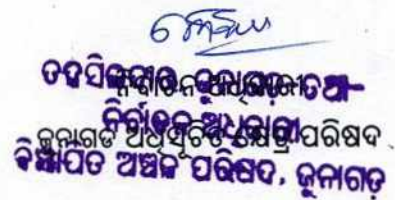 ତହସିଲଦାର, ଜୁନାଗଡ଼ ତଥା
ନିର୍ବାଚନ ଅଧିକାରୀ
ନିର୍ବାଚନ ଅଧିକାରୀ
ଜୁନାଗଡ ଅଧିସୂଚିତ କ୍ଷେତ୍ର ପରିଷଦ
ବିଜ୍ଞାପିତ ଅଞ୍ଚଳ ପରିଷଦ, ଜୁନାଗଡ଼